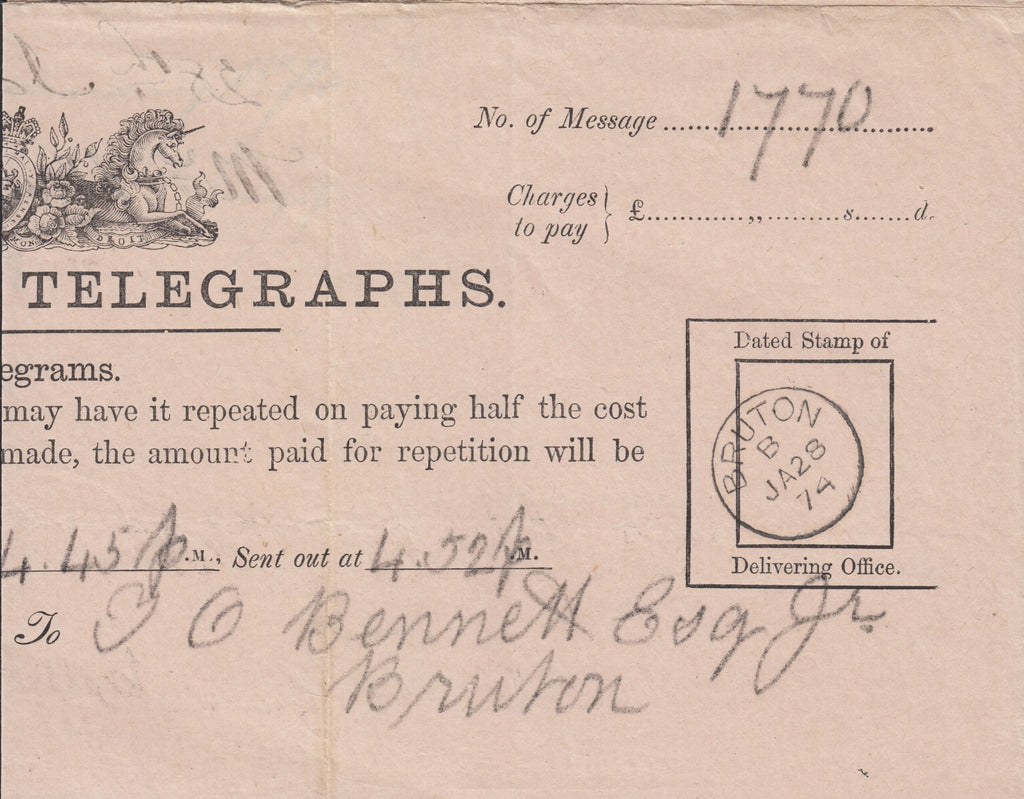 No. of Message 1770
Charges to pay } £ ,, s. d.
MON DROIT
TELEGRAPHS.
egrams.
may have it repeated on paying half the cost
made, the amount paid for repetition will be
Dated Stamp of
BRUTON
B
JA 28
74
Delivering Office.
4.45 P.M., Sent out at 4.52 P.M.
To
O Bennett Esq Jr.
Bruton